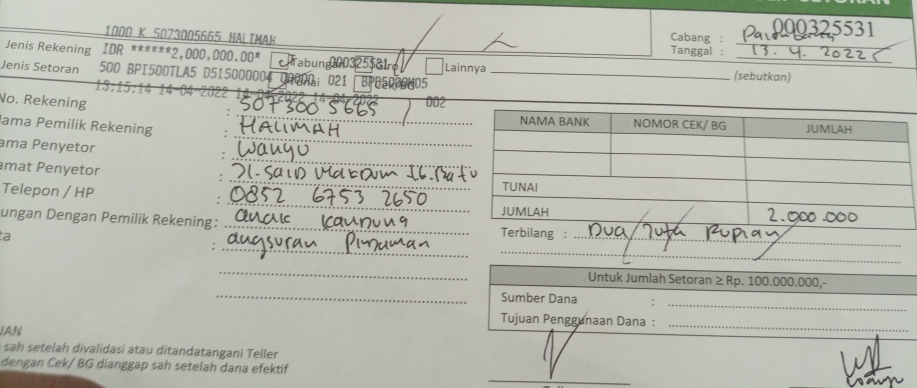 SETORAN
1000 K 5073005665 HALIMAH
000325531
Cabang :
Tanggal : 13. 4. 2022
Jenis Rekening IDR ******2,000,000.00* Tabungan 000325531 Giro Lainnya
(sebutkan)
Jenis Setoran 500 BPI500TLA5 D515000004 Tunai 021 Cek/BG
13:15:14 14-04-2022 14-04-2022 14-04-2022 002
No. Rekening : 5073005665
ama Pemilik Rekening : HALIMAH
ama Penyetor : Wahyu
amat Penyetor : Jl. SAID
Telepon / HP : 0852 6753 2650
ungan Dengan Pemilik Rekening : anak kandung
ta : angsuran Pinjaman
NAMA BANK NOMOR CEK/ BG JUMLAH
TUNAI
JUMLAH 2.000.000
Terbilang : Dua Juta Rupiah
Untuk Jumlah Setoran ≥ Rp. 100.000.000,-
Sumber Dana :
Tujuan Penggunaan Dana :
UAN
sah setelah divalidasi atau ditandatangani Teller
dengan Cek/ BG dianggap sah setelah dana efektif